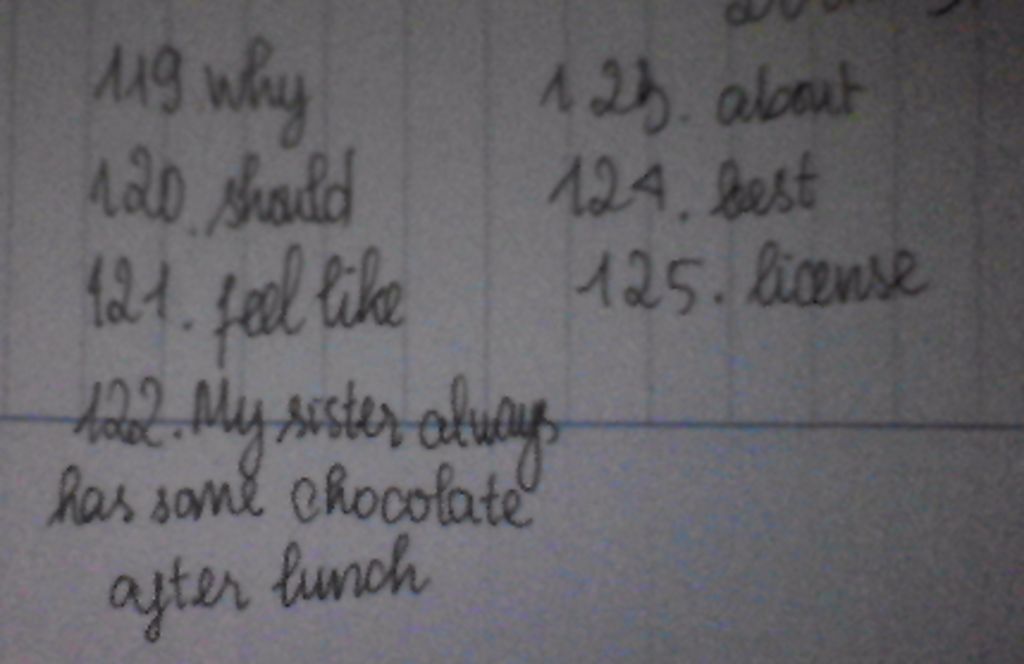 119 why
120. should
121. feel like
122. My sister always
has some chocolate
after lunch
123. about
124. best
125. license